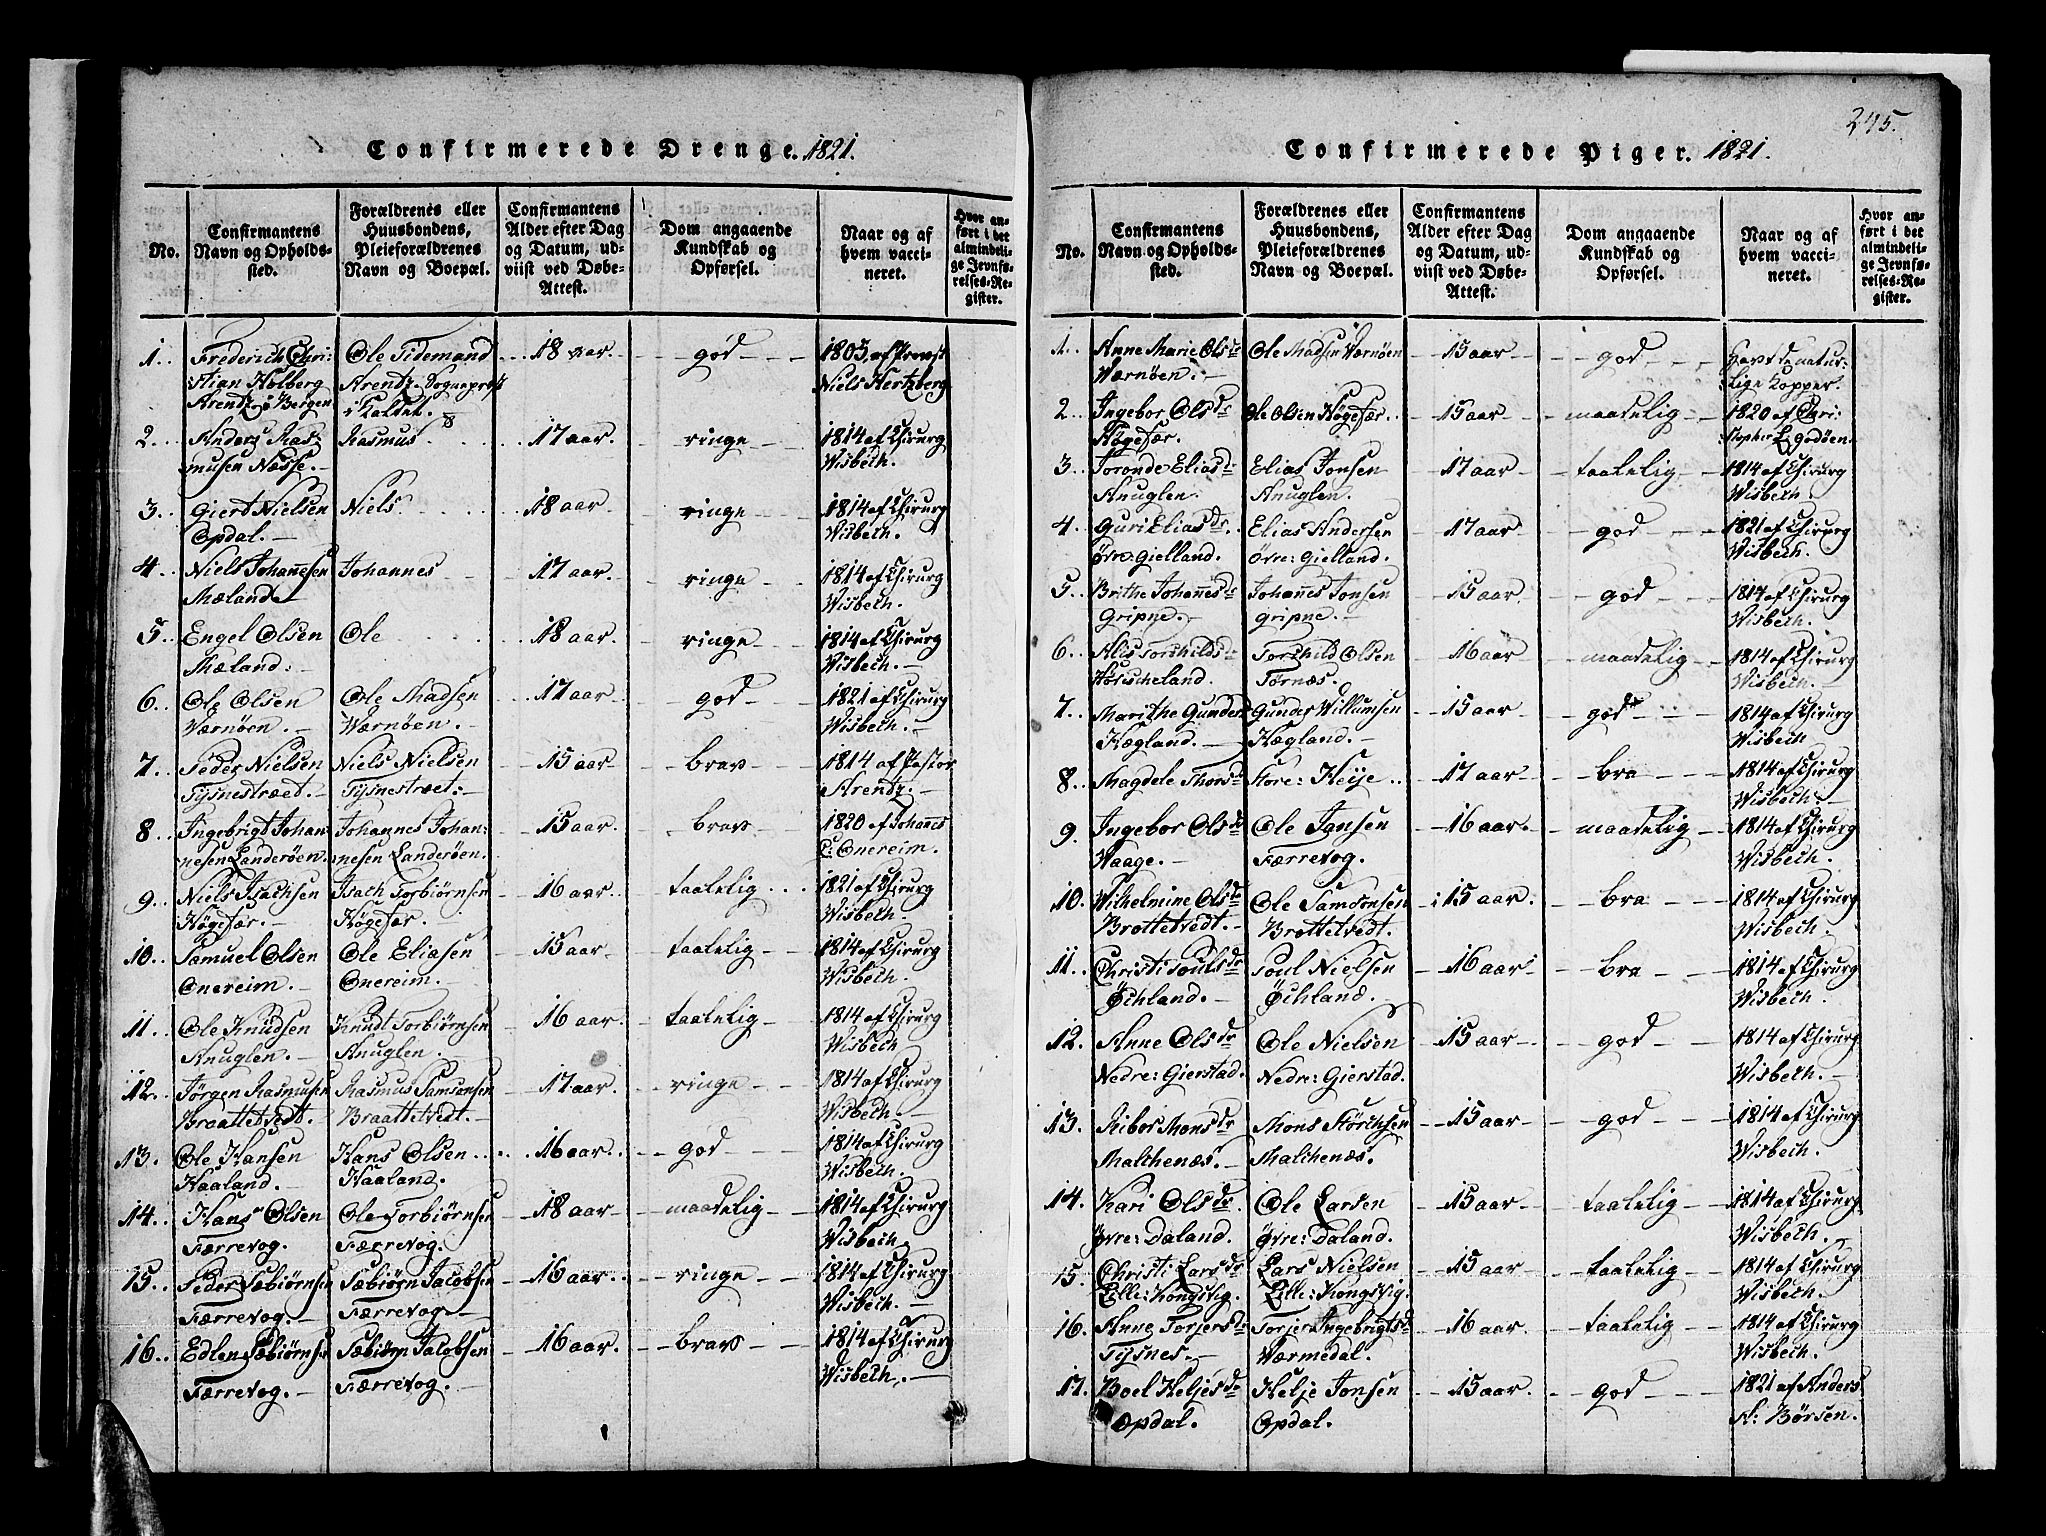 Confirmerede Drenge. 1821.
No.
Confirmantens Navn og Opholdssted.
Forældrenes eller Huusbondens, Pleieforældrenes Navn og Boepæl.
Confirmantens Alder efter Dag og Datum, udviist ved Døbe-Attest.
Dom angaaende Kundskab og Opførsel.
Naar og af hvem vaccineret.
Hvor anført i det almindelige Jevnførelses-Register.
1. Frederich Chri- Ole Tidemand 18 aar god 1803 af Provst
stian Holberg Arentz Sognepræst Niels Hertzberg
Arentz i Bergen i Kaldet.
2. Anders Ras- Rasmus 17 aar ringe 1814 af Chirurg
musen Næsse. Wisbech.
3. Giert Nielsen Niels 18 aar ringe 1814 af Chirurg
Opdal. Wisbech.
4. Niels Johannesen Johannes 17 aar. ringe 1814 af Chirurg
Mæland Wisbech.
5. Engel Olsen Ole 18 aar. ringe 1814 af Chirurg
Mæland: Wisbech.
6. Ole Olsen Ole Madsen 17 aar god 1821 af Chirurg
Wærnøen. Wærnøen. Wisbech.
7. Peder Nielsen Niels Nielsen 15 aar brav 1814 af Pastor
Tysnestræet. Tysnestræet. Arentz.
8. Ingebrigt Johan- Johannes Johan- 15 aar. brav 1820 af Johannes
nesen Landerøen. nesen Landerøen. Onereim.
9. Niels Isachsen Isach Torbiørnsen 16 aar taalelig 1821 af Chirurg
Høgefær. Høgefær. Wisbech.
10. Samuel Olsen Ole Eliasen 15 aar taalelig 1814 af Chirurg
Onereim. Onereim. Wisbech.
11. Ole Knudsen Knudt Torbiørnsen 16 aar. taalelig 1814 af Chirurg
Anuglen. Anuglen. Wisbech
12. Jørgen Rasmusen Rasmus Samsonsen 17 aar ringe 1814 af Chirurg
Braattetvedt. Braattetvedt. Wisbech.
13. Ole Hansen Hans Olsen 16 aar god 1814 af Chirurg
Haaland. Haaland. Wisbech.
14. Hans Olsen Ole Torbiørnsen 18 aar maadelig 1814 af Chirurg
Færrevog. Færrevog. Wisbech.
15. Peder Sæbiørnsen Sæbiørn Jacobsen 16 aar ringe 1814 af Chirurg
Færrevog. Færrevog. Wisbech.
16. Edlen Sæbiørnsen Sæbiørn Jacobsen 16 aar. brav 1814 af Chirurg
Færrevog. Færrevog. Wisbech.
245.
Confirmerede Piger. 1821.
No.
Confirmantens Navn og Opholdssted.
Forældrenes eller Huusbondens, Pleieforældrenes Navn og Boepæl.
Confirmantens Alder efter Dag og Datum, udviist ved Døbe-Attest.
Dom angaaende Kundskab og Opførsel.
Naar og af hvem vaccineret.
Hvor anført i det almindelige Jevnførelses-Register.
1. Anne Marie Olsdr Ole Madsen Wærnøen 15 aar god Havt de natur-
Wærnøen. lige Kopper.
2. Ingebor Olsdr Ole Olsen Høgefær. 15 aar maadelig 1820 af Chri-
Høgefær. stopher Godøen.
3. Toronde Eliasdr Elias Jonsen 17 aar taalelig 1814 af Chirurg
Anuglen. Anuglen. Wisbech.
4. Guri Eliasdr. Elias Andersen 17 aar god 1821 af Chirurg
Øvre: Gielland. Øvre: Gielland. Wisbech.
5. Brithe Johannesdr Johannes Jonsen 15 aar. god 1814 af Chirurg
Gripne. Gripne. Wisbech.
6. Alis Torchildsdr Torchild Olsen 16 aar maadelig 1814 af Chirurg
Tornæs. Wisbech.
7. Marithe Gunders Gunder Willumsen 15 aar god 1814 af Chirurg
Hægland. Hægland. Wisbech
8. Magdele Monsdr Store: Heye 17 aar bra 1814 af Chirurg
Wisbech.
9. Ingebor Olsdr Ole Jansen 16 aar. maadelig 1814 af Chirurg
Waage. Færrevog. Wisbech.
10. Wilhelmine Olsdr Ole Samsonsen 15 aar. bra 1814 af Chirurg
Brattetvedt. Brattetvedt. Wisbech.
11. Christi Poulsdr Poul Nielsen 16 aar bra 1814 af Chirurg
Øchland. Øchland. Wisbech.
12. Anne Olsdr Ole Nielsen 15 aar god 1814 af Chirurg
Nedre: Gierstad. Nedre: Gierstad. Wisbech.
13. Ribor Monsdr Mons Størchsen 15 aar god 1814 af Chirurg
Malchenæs. Malchenæs. Wisbech.
14. Kari Olsdr. Ole Larsen 15 aar taalelig 1814 af Chirurg
Øvre: Daland. Øvre: Daland. Wisbech.
15. Christi Larsdr Lars Nielsen 15 aar taalelig 1814 af Chirurg
Lille: Kongsvig. Lille: Kongsvig. Wisbech.
16. Anne Torjersdr Torjer Ingebrigts 16 aar taalelig 1814 af Chirurg
Tysnes. Wærmedal. Wisbech.
17. Boel Heljesdr Helje Jonsen 15 aar god 1821 af Anders
Opdal. Opdal. A: Børsen.